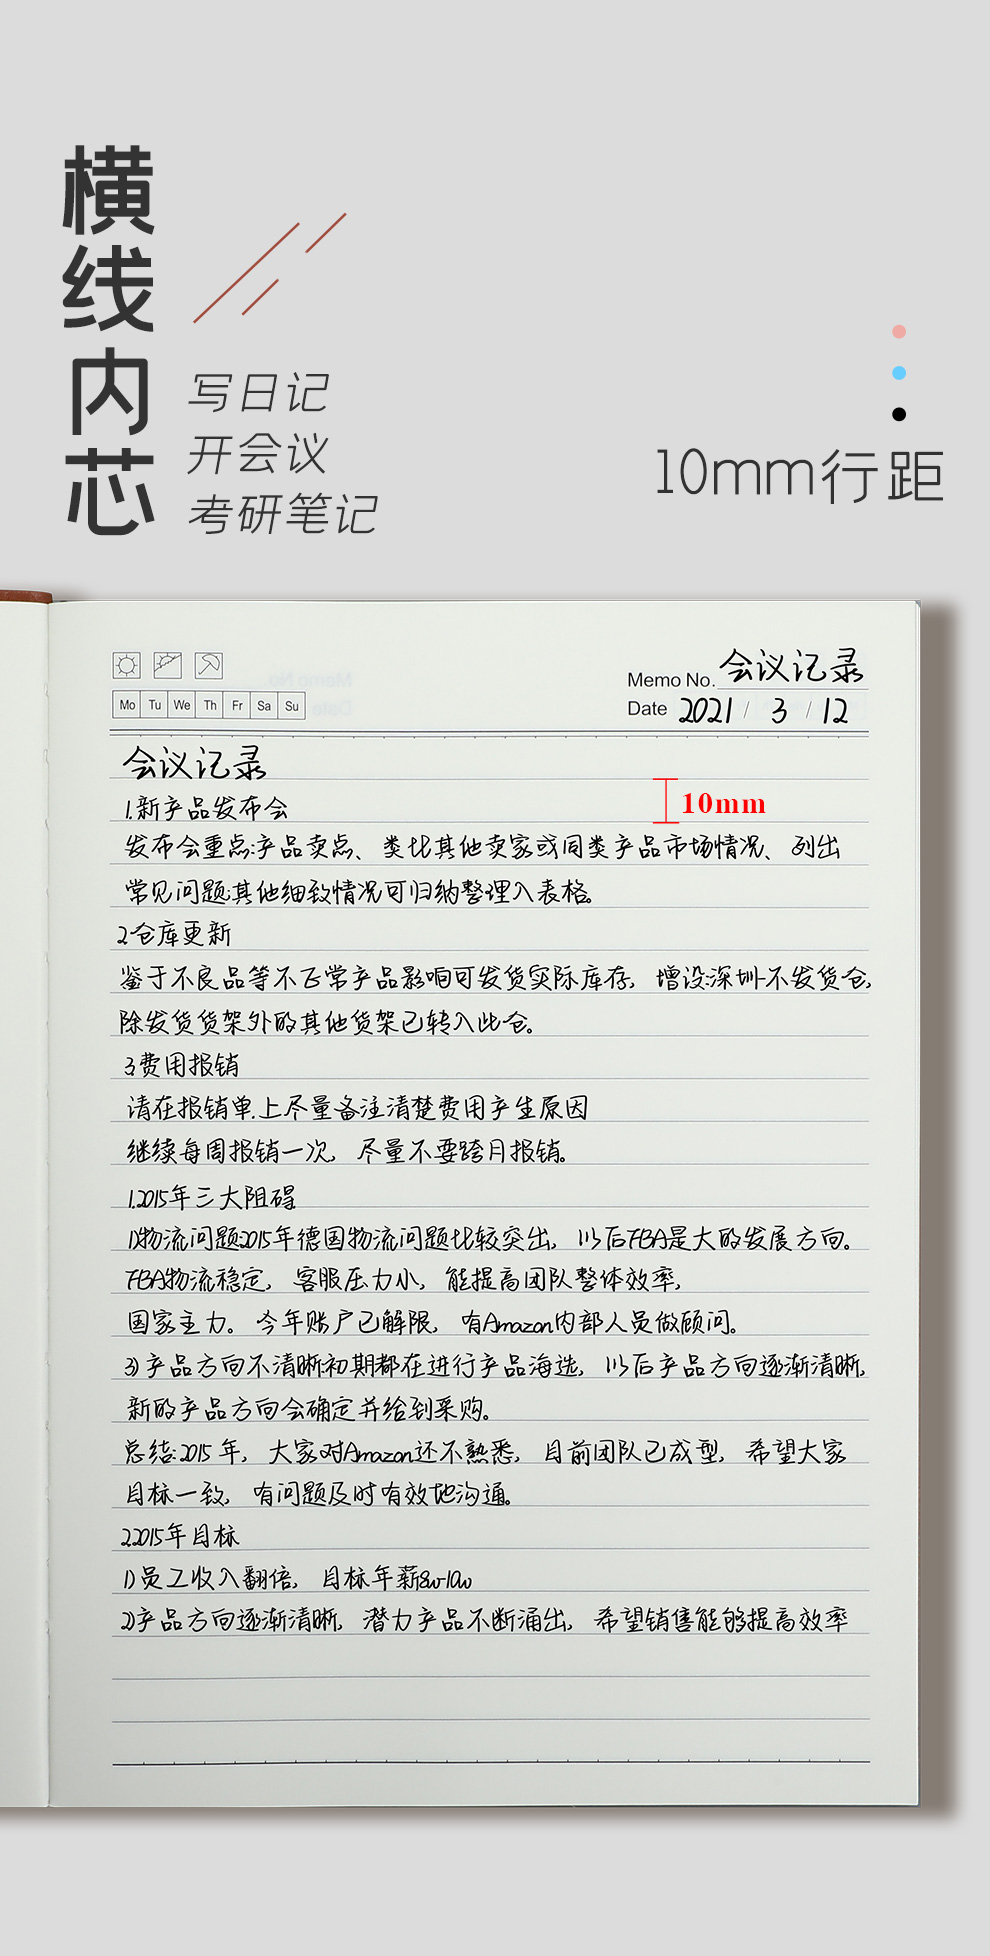 横线内芯
写日记
开会议
考研笔记
10mm行距
Memo No. 会议记录
Mo Tu We Th Fr Sa Su
Date 2021 / 3 / 12
会议记录
10mm
1.新产品发布会
发布会重点:产品卖点、类比其他卖家或同类产品市场情况、列出
常见问题其他细致情况可归纳整理入表格。
2仓库更新
鉴于不良品等不正常产品影响可发货实际库存, 增设:深圳-不发货仓,
除发货货架外的其他货架已转入此仓。
3.费用报销
请在报销单上尽量备注清楚费用产生原因
继续每周报销一次, 尽量不要跨月报销。
1.2015年三大阻碍
1)物流问题:2015年德国物流问题比较突出, 以后FBA是大的发展方向。
FBA物流稳定, 客服压力小, 能提高团队整体效率,
国家主力。今年账户已解限, 有Amazon内部人员做顾问。
3)产品方向不清晰:初期都在进行产品海选, 以后产品方向逐渐清晰,
新的产品方向会确定并给到采购。
总结:2015年, 大家对Amazon还不熟悉, 目前团队已成型, 希望大家
目标一致, 有问题及时有效地沟通。
2.2015年目标
1)员工收入翻倍, 目标年薪8w-10w
2)产品方向逐渐清晰, 潜力产品不断涌出, 希望销售能够提高效率